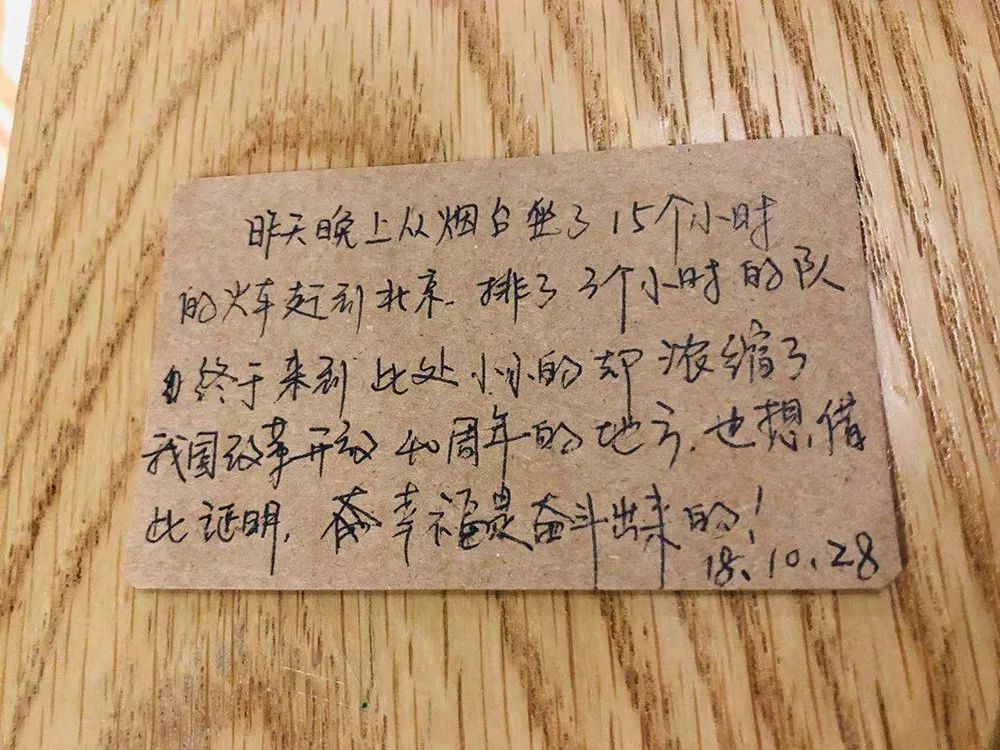 昨天晚上从烟台坐了15个小时
的火车赶到北京.排了3个小时的队
终于来到此处小小的却浓缩了
我国改革开放40周年的地方.也想借
此证明,幸福是奋斗出来的!
18.10.28